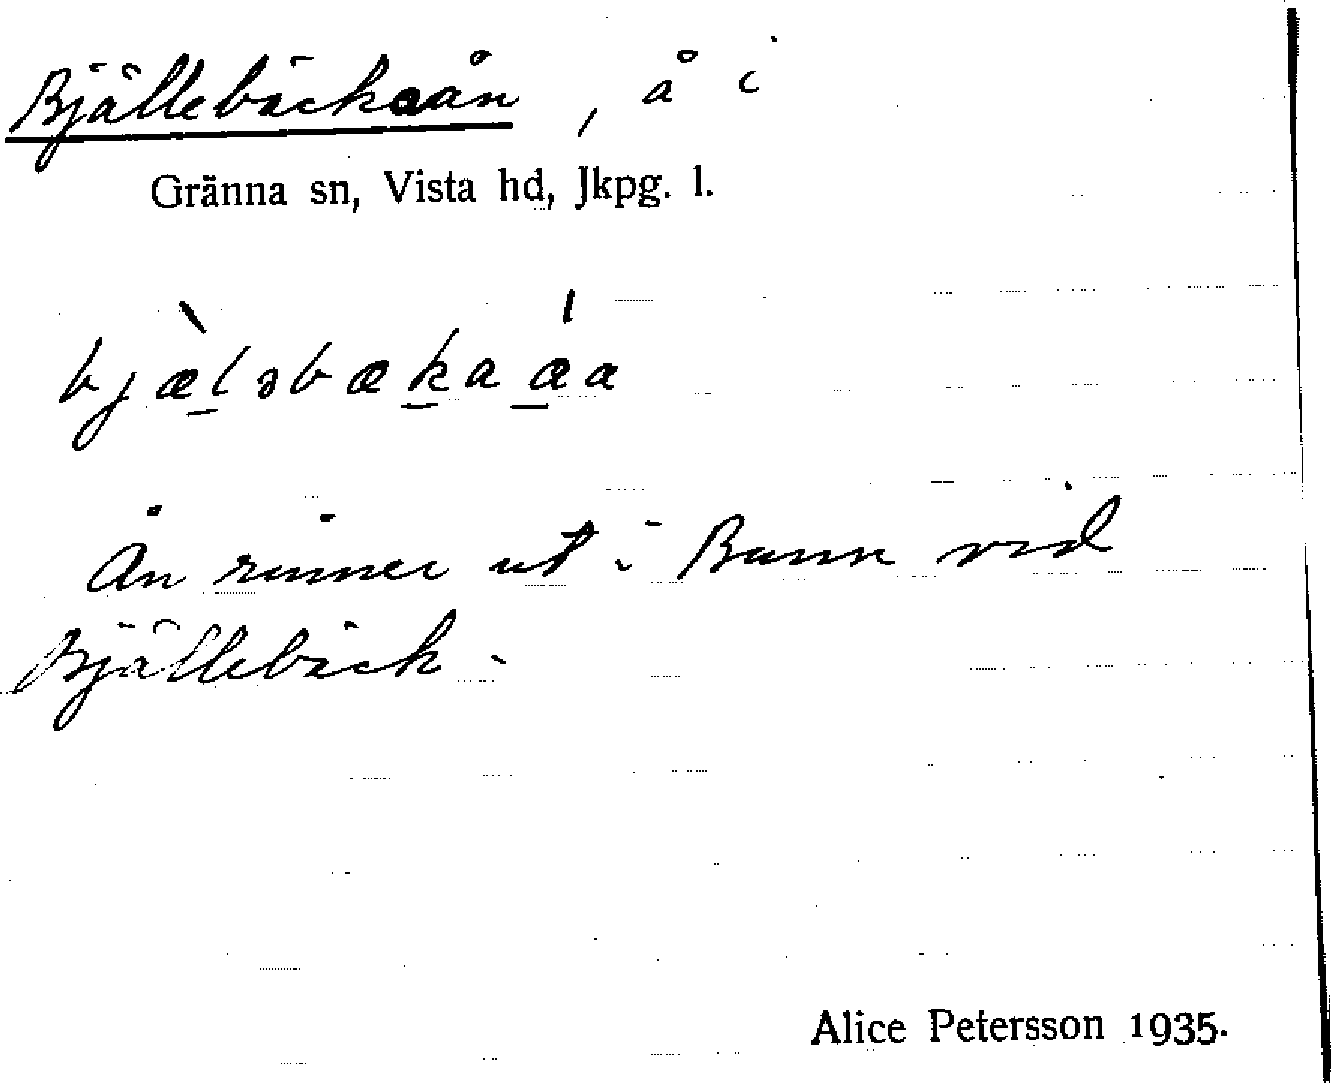 Bjällebäckaån, å i
Gränna sn, Vista hd, Jkpg. l.
bjæ̀l̲əbæk̲aá̲a
Ån rinner ut i Bunn vid
Bjällebäck.
Alice Petersson 1935.